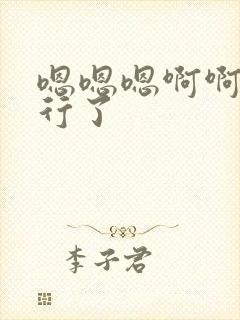 嗯嗯嗯啊啊
行了
李子君